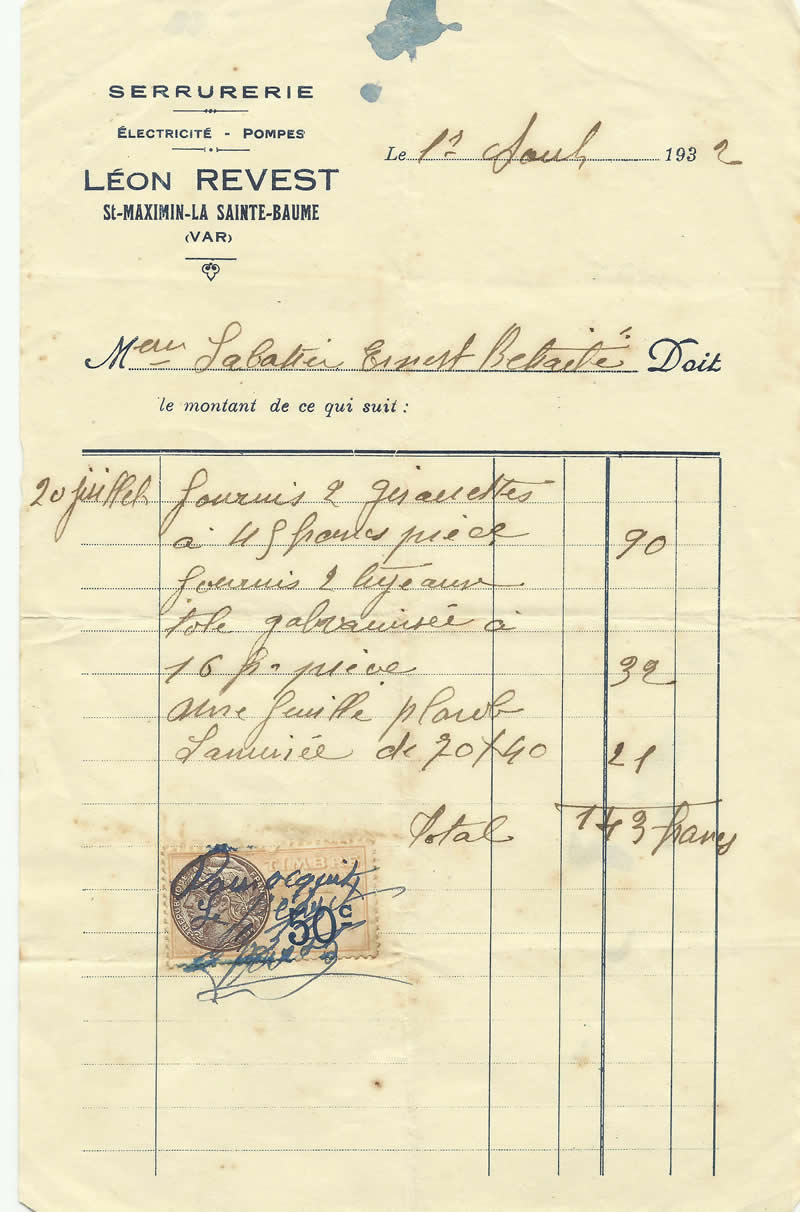 SERRURERIE
ÉLECTRICITÉ - POMPES
LÉON REVEST
St-MAXIMIN-LA SAINTE-BAUME
(VAR)
Le 1er Aout 1932
M Sabatier Ernest Retraité Doit
le montant de ce qui suit :
20 juillet fournis 2 girouettes
à 45 francs pièce 90
fournis 2 tuyeaux
tole galvanisée à
16 fr piéce 32
une feuille plomb
laminée de 70/40 21
Total 143 francs
TIMBRE
Pour acquit
Le
50c